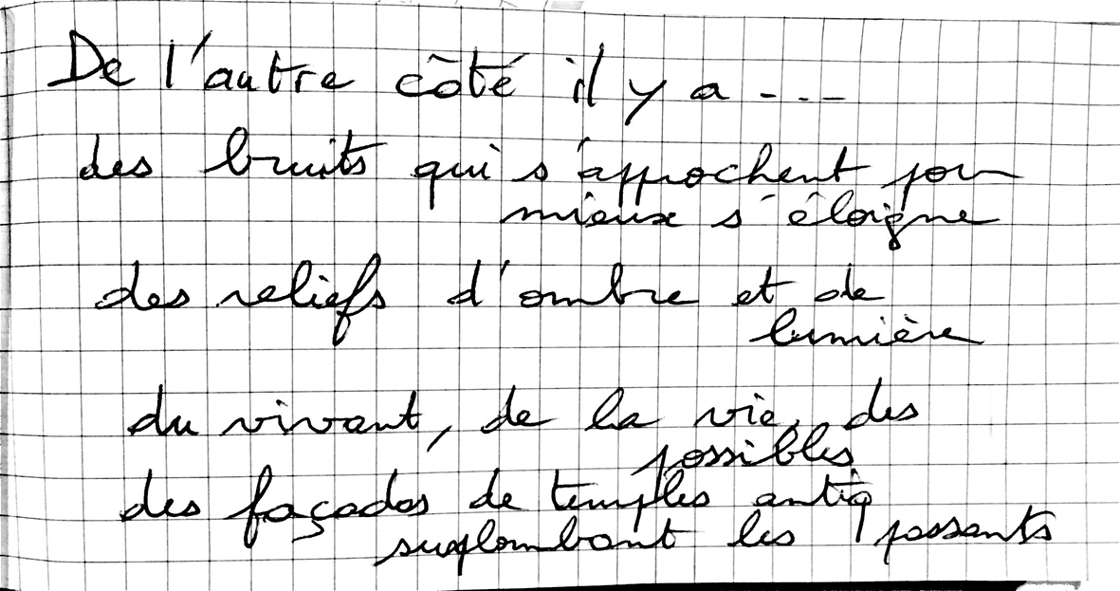 De l'autre côté il y a ----
des bruits qui s'approchent pour
mieux s'éloigne
des reliefs d'ombre et de
lumière
du vivant, de la vie, des
possibles
des façades de temples antiq
surplombant les passants